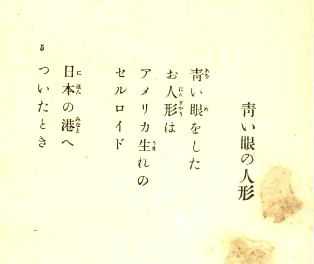 靑い眼の人形
靑い眼をした
お人形は
アメリカ生れの
セルロイド
日本の港へ
ついたとき